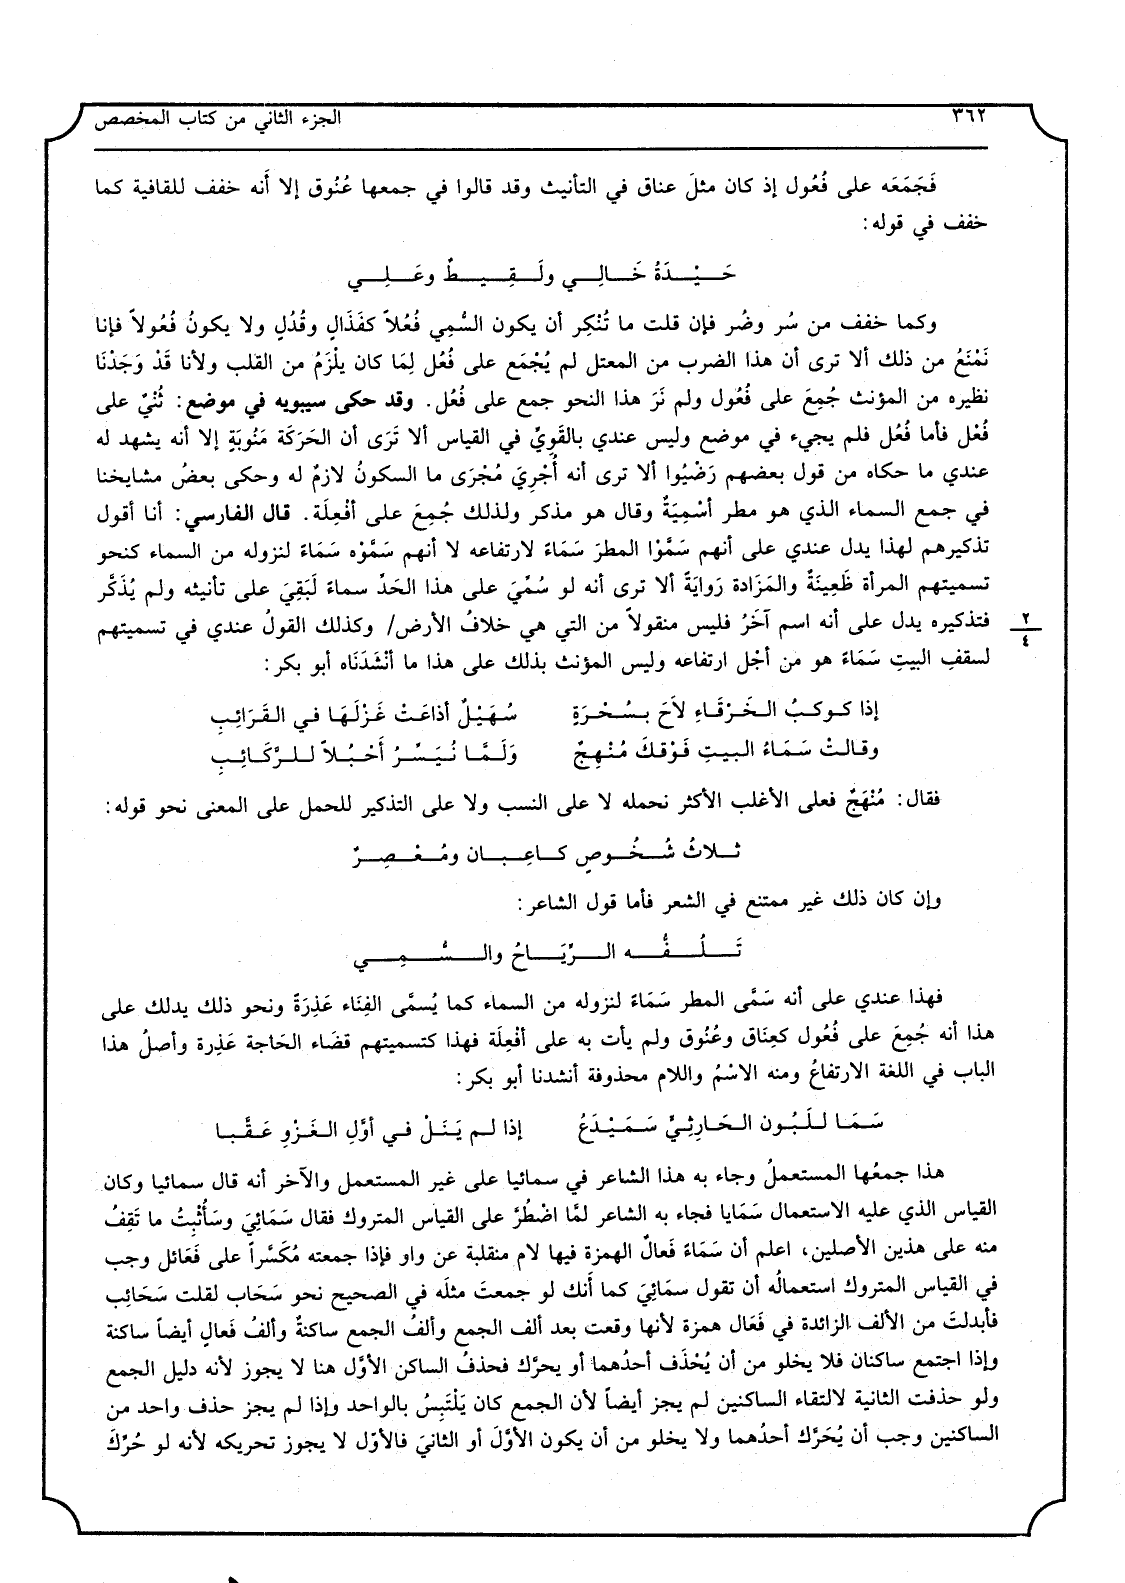 ٣٦٢ الجزء الثاني من كتاب المخصص
فَجَمَعَه على فُعُول إذ كان مثلَ عناق في التأنيث وقد قالوا في جمعها عُنُوق إلا أَنه خفف للقافية كما
خفف في قوله:
حَـيْـدَةُ خَـالِـي ولَـقِـيـطٌ وعَـلِـي
وكما خفف من سُر وضُر فإن قلت ما تُنْكِر أن يكون السُّمِي فُعُلاً كقَذَالٍ وقُذُلٍ ولا يكونُ فُعُولاً فإنا
نَمْنَعُ من ذلك ألا ترى أن هذا الضرب من المعتل لم يُجْمَع على فُعُل لِمَا كان يلْزَمُ من القلب ولأنا قَدْ وَجَدْنَا
نظيره من المؤنث جُمِعَ على فُعُول ولم نَرَ هذا النحو جمع على فُعُل. وقد حكى سيبويه في موضع: ثُنْيٌ على
فُعْل فأما فُعُل فلم يجيء في موضع وليس عندي بالقَوِيِّ في القياس ألا تَرَى أن الحَرَكَة مَنُويةٍ إلا أنه يشهد له
عندي ما حكاه من قول بعضهم رَضْيُوا ألا ترى أنه أُجْرِيَ مُجْرَى ما السكونُ لازمٌ له وحكى بعضُ مشايخنا
في جمع السماء الذي هو مطر أسْمِيَةٌ وقال هو مذكر ولذلك جُمِعَ على أفْعِلَة. قال الفارسي: أنا أقول
تذكيرهم لهذا يدل عندي على أنهم سَمَّوْا المطرَ سَمَاءً لارتفاعه لا أنهم سَمَّوْه سَمَاءً لنزوله من السماء كنحو
تسميتهم المرأة ظَعِينَةٌ والمَزَادة رَوايَةً ألا ترى أنه لو سُمِّيَ على هذا الحَدِّ سماءً لَبَقِيَ على تأنيثه ولم يُذَكَّر
فتذكيره يدل على أنه اسم آخَرُ فليس منقولاً من التي هي خلافُ الأرض/ وكذلك القولُ عندي في تسميتهم
٢
٤
لسقفِ البيتِ سَمَاءً هو من أجْل ارتفاعه وليس المؤنث بذلك على هذا ما أنْشَدَنَاه أبو بكر:
إذا كـوكـبُ الـخَـرْقَـاءِ لاَحَ بـسُـحْـرَةٍ سُهَيْلٌ أذاعَتْ غَزْلَهَا في القَرَائِبِ
وقـالـتْ سَـمَـاءُ الـبيـتِ فَـوْقـكَ مُـنْـهِـجٌ وَلَـمَّـا نُـيَـسِّـرُ أَحْـبُـلاً لـلـرَّكَـائـبِ
فقال: مُنْهَجٌ فعلى الأغلب الأكثر نحمله لا على النسب ولا على التذكير للحمل على المعنى نحو قوله:
ثـلاثُ شُـخُـوصٍ كـاعِـبـان ومُـعْـصِـرٌ
وإن كان ذلك غير ممتنع في الشعر فأما قول الشاعر:
تَـلُـفُّـه الـرِّيَـاحُ والـسُّـمِـي
فهذا عندي على أنه سَمَّى المطر سَمَاءً لنزوله من السماء كما يُسمَّى الفِنَاء عَذِرَةً ونحو ذلك يدلك على
هذا أنه جُمِعَ على فُعُول كعِنَاق وعُنُوق ولم يأت به على أفْعِلَة فهذا كتسميتهم قضَاء الحَاجة عَذِرة وأصلُ هذا
الباب في اللغة الارتفاعُ ومنه الاسْمُ واللام محذوفة أنشدنا أبو بكر:
سَـمَـا لـلَـبُـون الـحَـارِثِـيِّ سَـمَـيْـدَعُ إذا لـم يَـنَـلْ فـي أوَّلِ الـغَـزْوِ عَـقَّـبـا
هذا جمعُها المستعملُ وجاء به هذا الشاعر في سمائيا على غير المستعمل والآخر أنه قال سمائيا وكان
القياس الذي عليه الاستعمال سَمَايا فجاء به الشاعر لمَّا اضْطُرَّ على القياس المتروك فقال سَمَائِيَ وسَأُثْبِتُ ما تَقِفُ
منه على هذين الأصلين، اعلم أن سَمَاءً فَعالٌ الهمزة فيها لام منقلبة عن واو فإذا جمعته مُكَسَّراً على فَعَائل وجب
في القياس المتروك استعمالُه أن تقول سمائِيَ كما أَنك لو جمعتَ مثلَه في الصحيح نحو سَحَاب لقلت سَحَائِب
فأبدلتَ من الألف الزائدة في فَعَال همزة لأنها وقعت بعد ألف الجمع وألفُ الجمع ساكنةٌ وألفُ فَعالٍ أيضاً ساكنة
وإذا اجتمع ساكنان فلا يخلو من أن يُحْذَف أحدُهما أو يحرَّك فحذفُ الساكن الأوَّل هنا لا يجوز لأنه دليل الجمع
ولو حذفت الثانية لالتقاء الساكنين لم يجز أيضاً لأن الجمع كان يَلْتَبِسُ بالواحد وإذا لم يجز حذف واحد من
الساكنين وجب أن يُحَرَّك أحدُهما ولا يخلو من أن يكون الأوَّلَ أو الثانيَ فالأوّل لا يجوز تحريكه لأنه لو حُرِّكَ